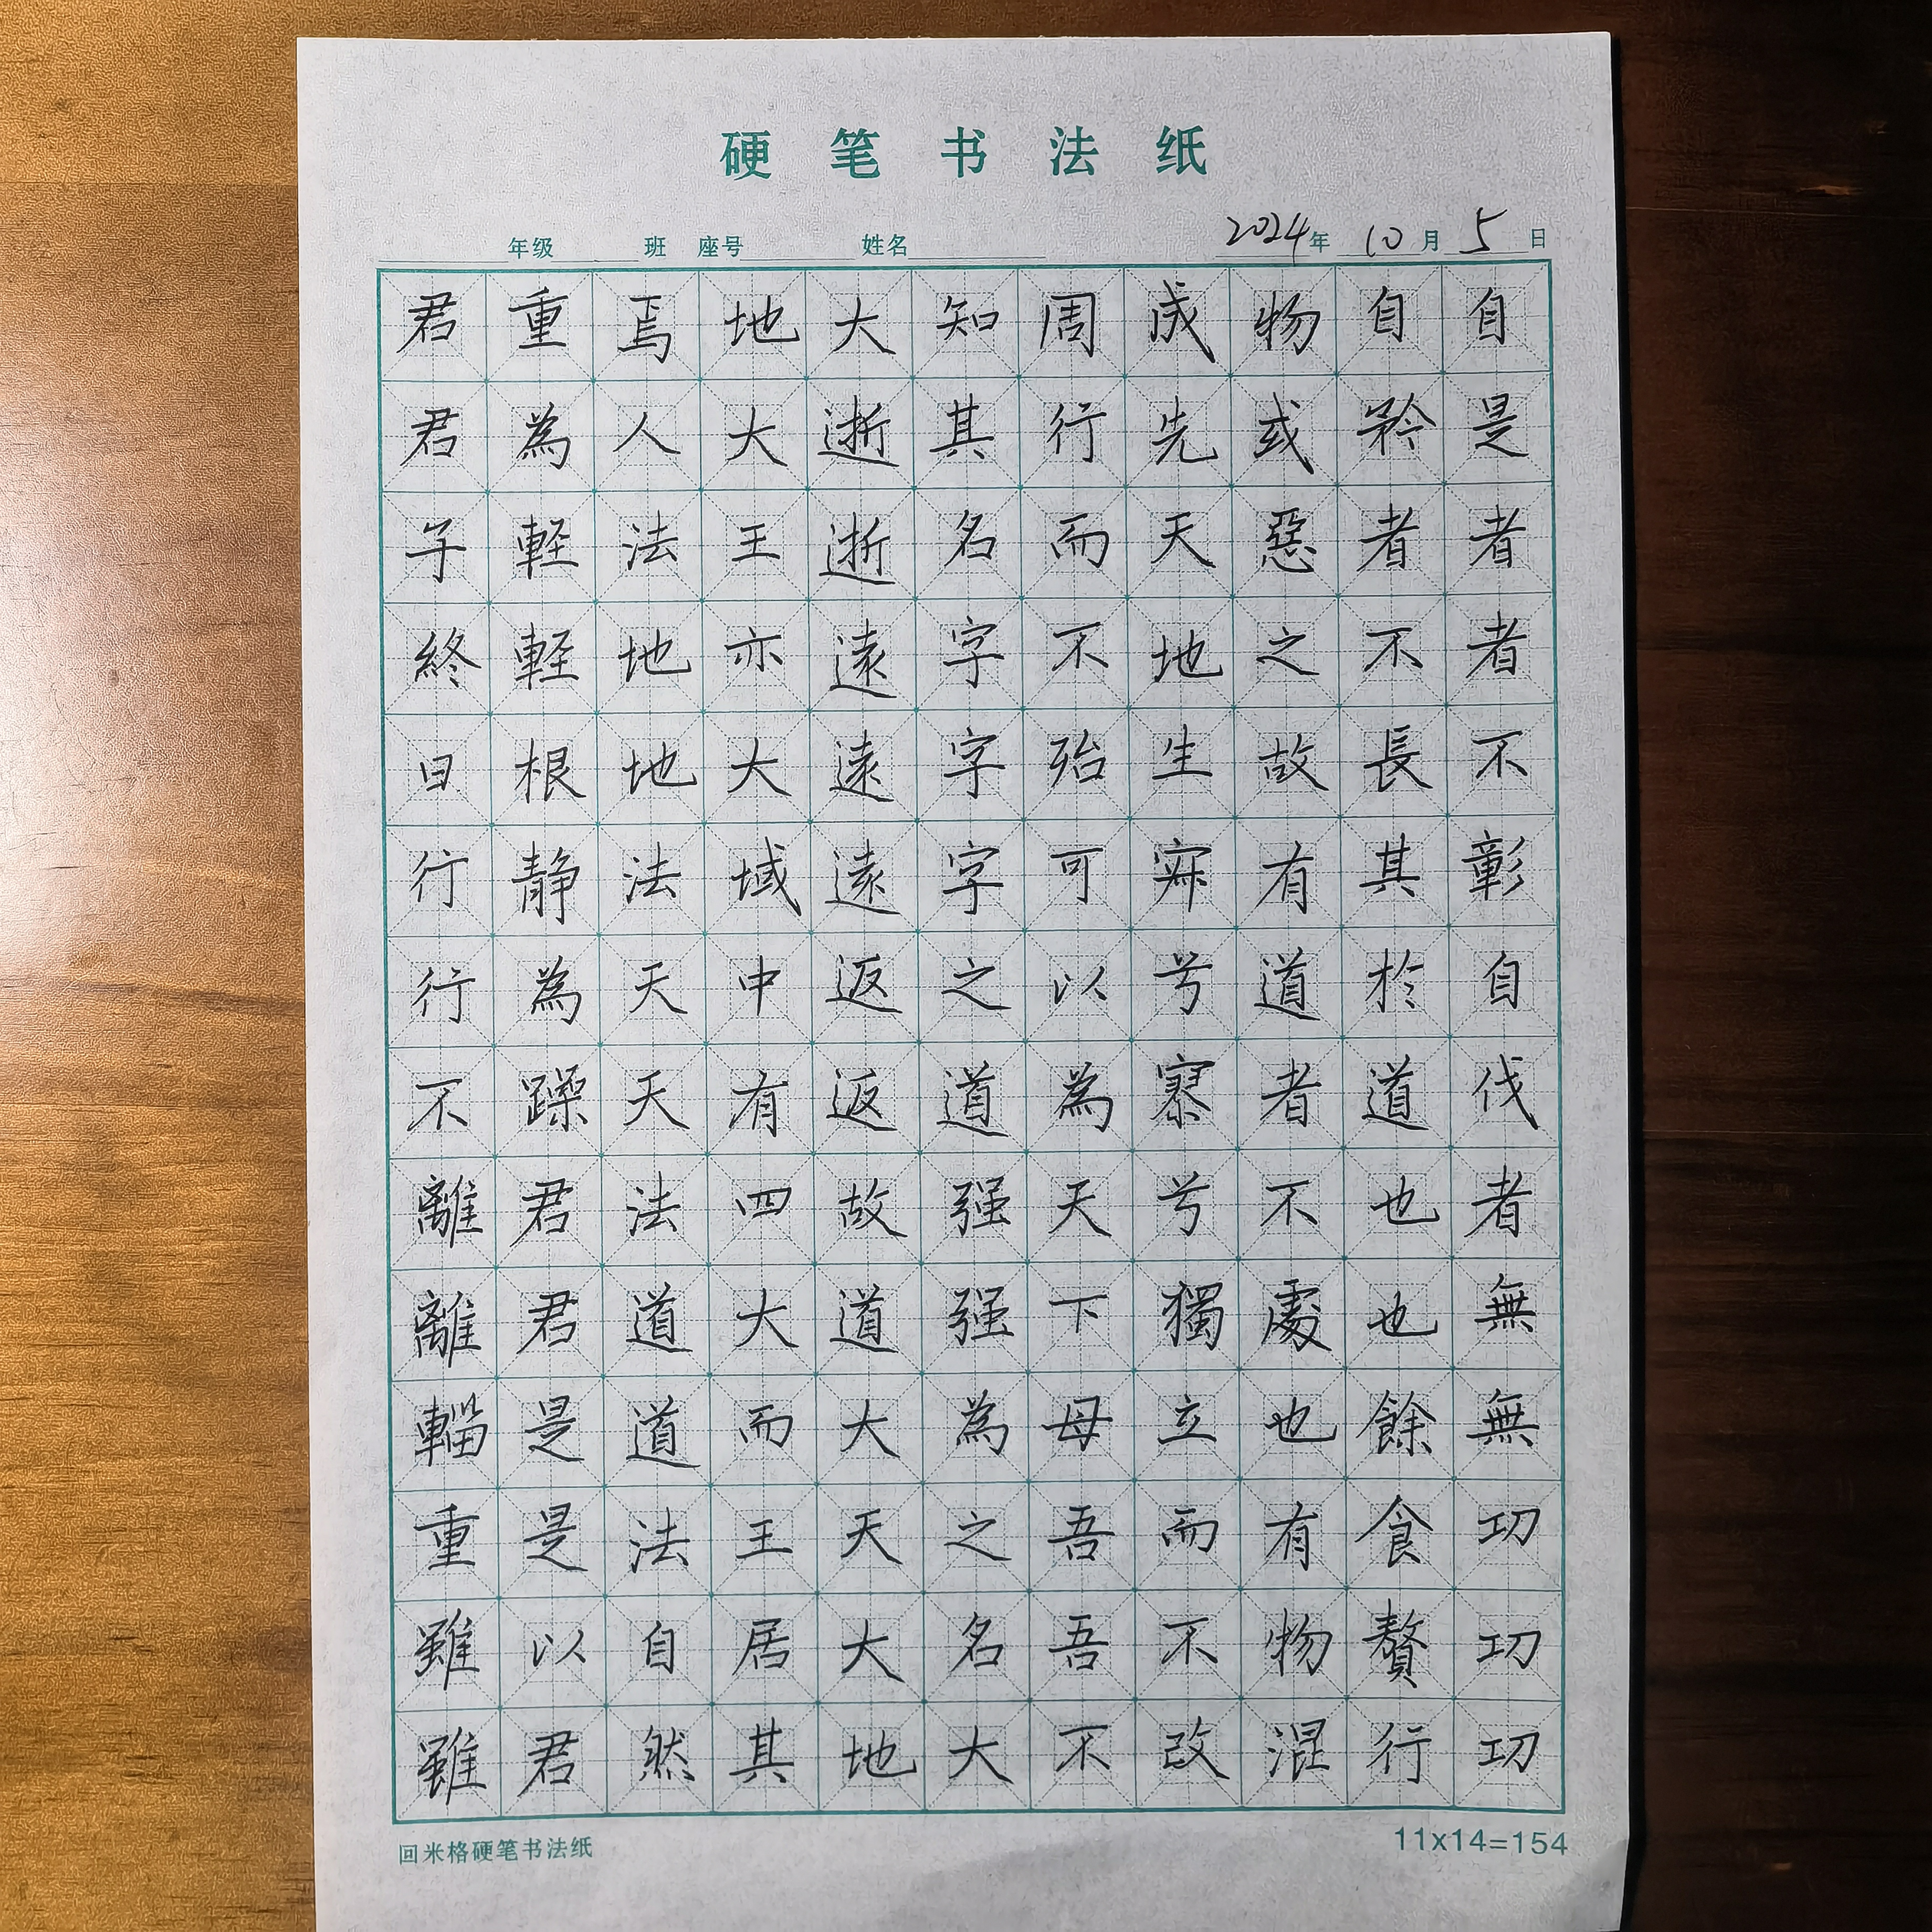 硬笔书法纸
年级 班 座号 姓名 2024年10月5日
自是者者不彰自伐者無無功功功
自矜者不長其於道也也餘食贅行
物或惡之故有道者不處也有物混
成先天地生寂兮寥兮獨立而不改
周行而不殆可以為天下母吾吾不
知其名字字字之道强强為之名大
大逝逝遠遠遠返返故道大天大地
地大王亦大域中有四大而王居其
焉人法地地法天天法道道法自然
重為輕輕根靜為躁君君是是以君
君君子終日行行不離離輜重雖雖
回米格硬笔书法纸
11x14=154